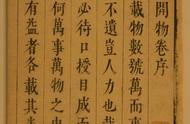 開物卷序
載物數號萬而事
不遺豈人力也哉
必待口授目成而
何萬事萬物之中
有益者各載其半